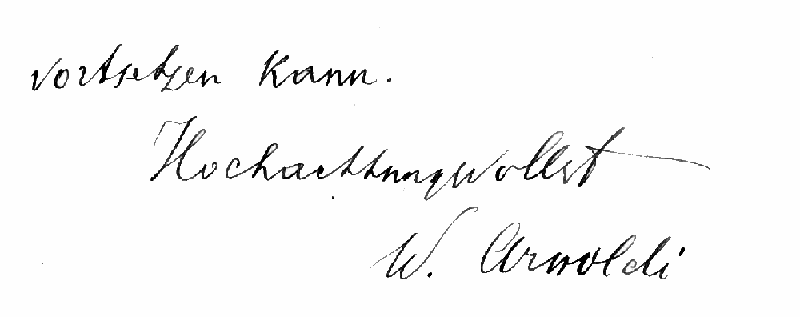 vortsetzen kann.
Hochachtungsvollst
W. Arnoldi